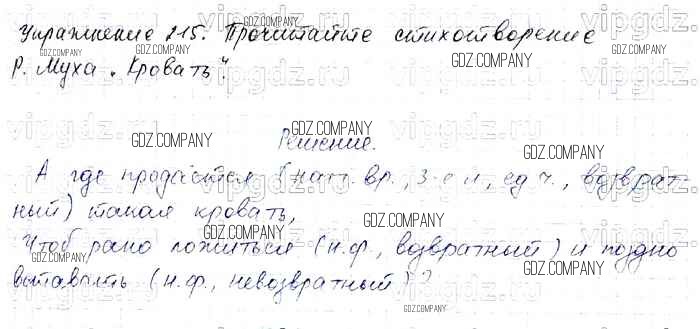 Упражнение 215. Прочитайте стихотворение
Р. Муха „Кровать".
Решение.
А где продаётся (наст. вр., 3-е л., ед. ч., возврат-
ный) такая кровать,
Чтоб рано ложиться (н.ф., возвратный) и поздно
вставать (н.ф., невозвратный)?
GDZ.COMPANY
vipgdz.ru